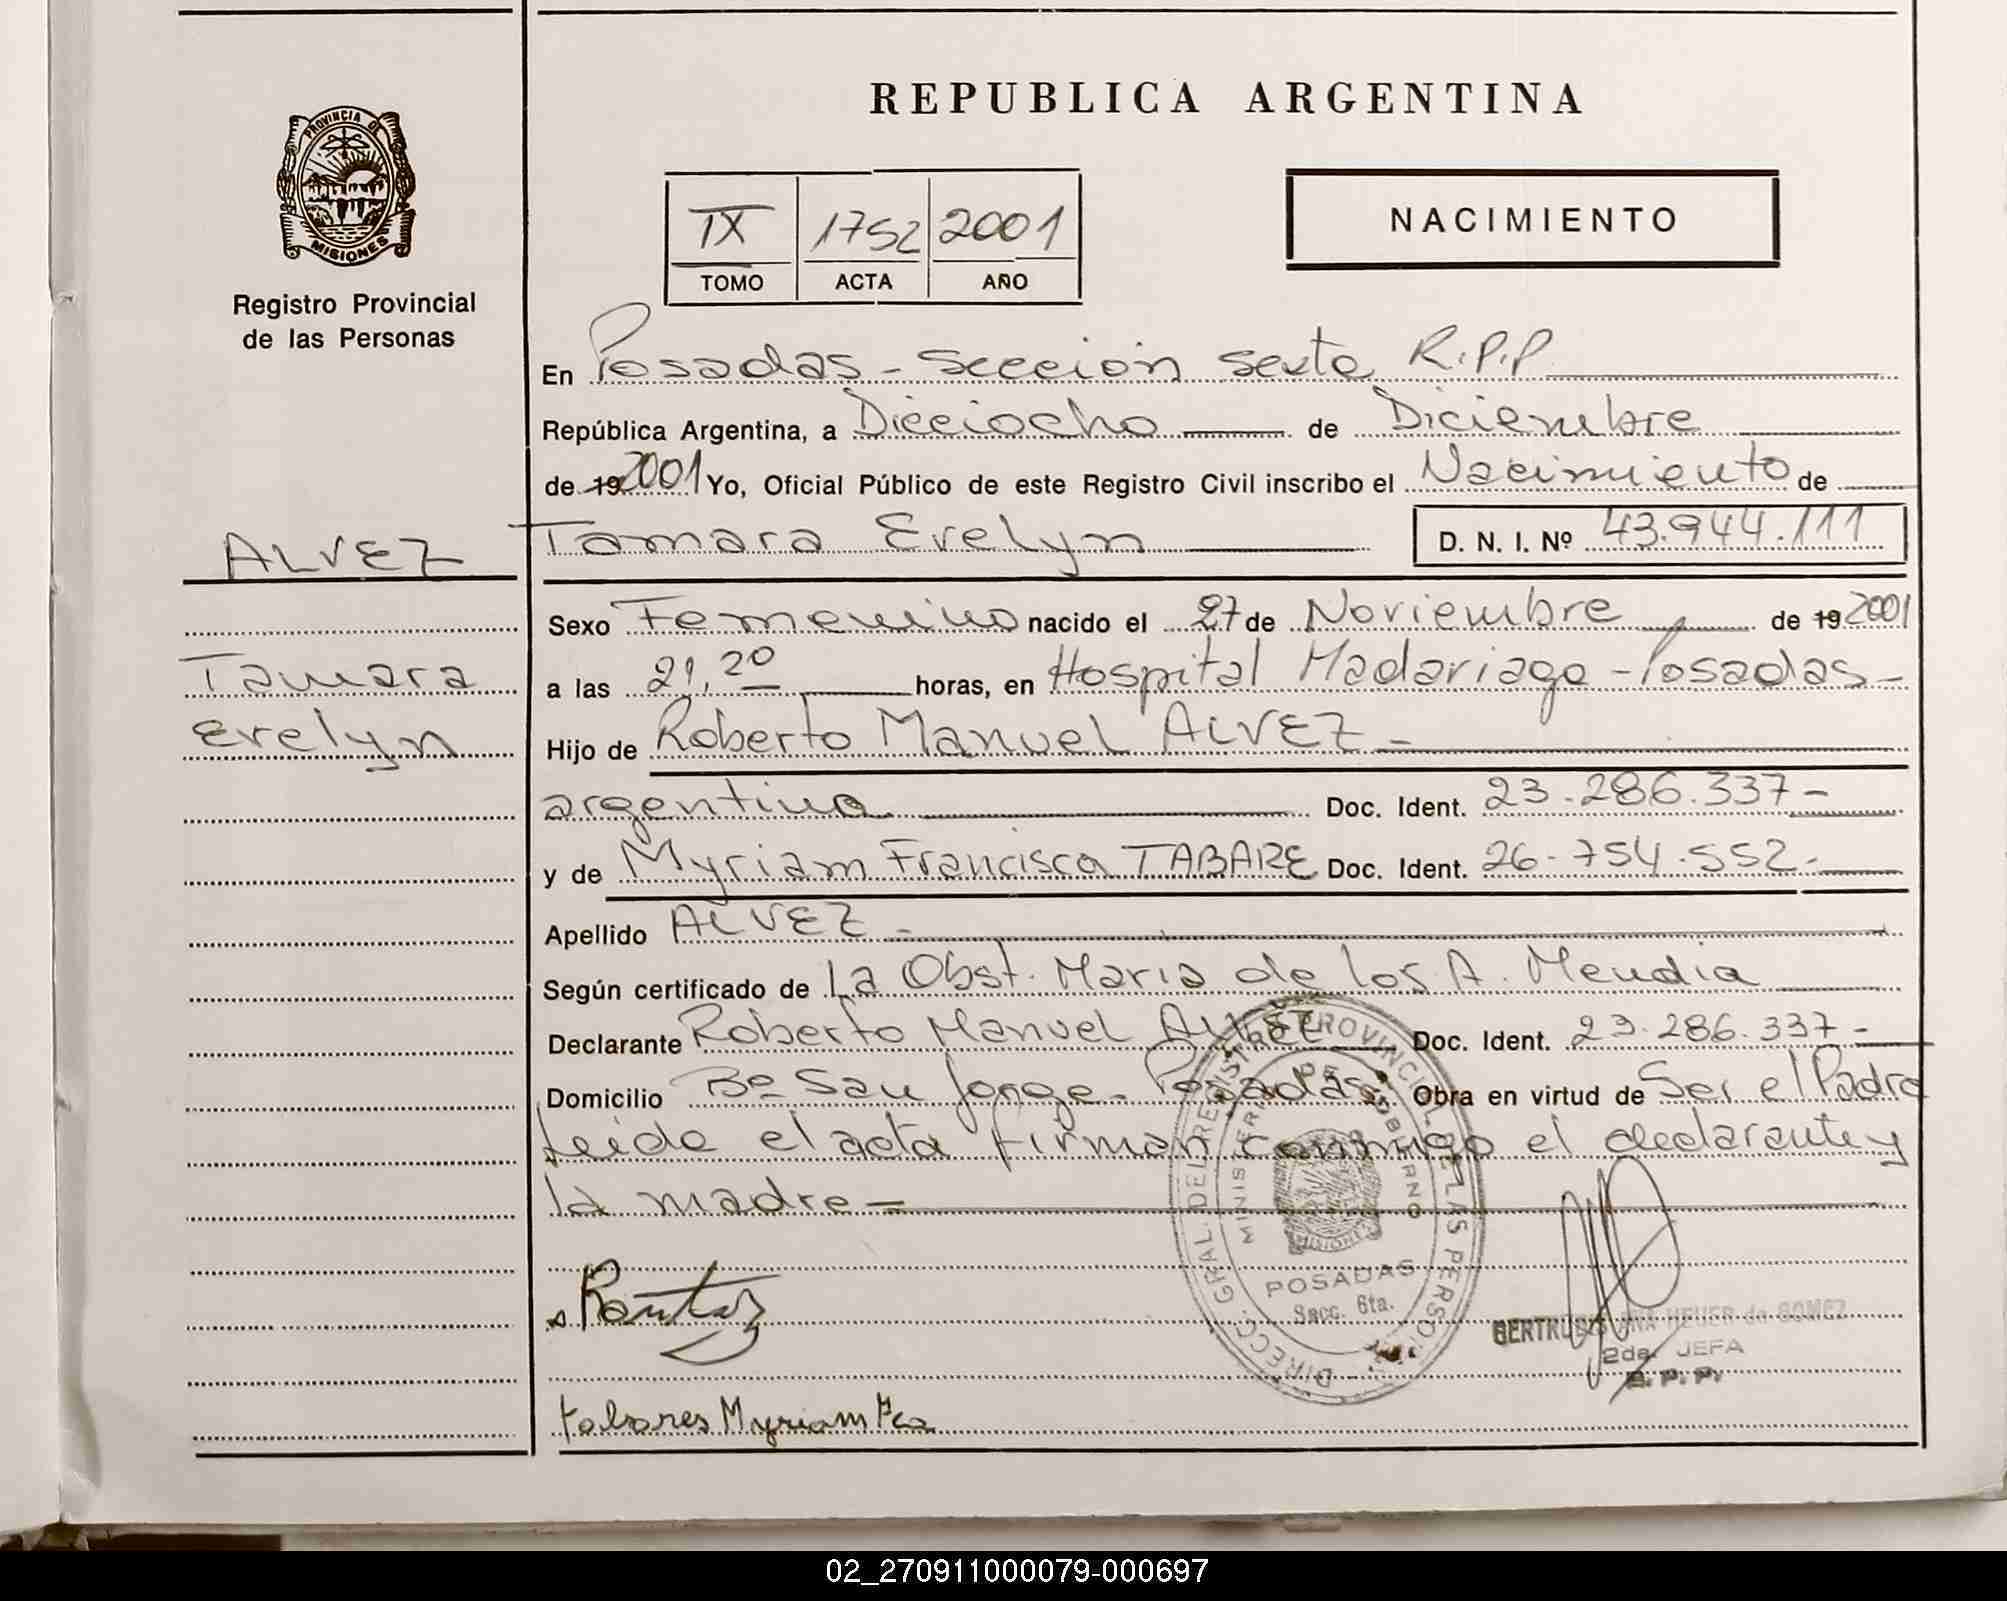 REPUBLICA ARGENTINA
PROVINCIA DE
MISIONES
Registro Provincial
de las Personas
IX 1752 2001
TOMO ACTA AÑO
NACIMIENTO
En Posadas - Sección sexta R.P.P
República Argentina, a Dieciocho de Diciembre
de 19 2001 Yo, Oficial Público de este Registro Civil inscribo el Nacimiento de
ALVEZ
Tamara Evelyn D. N. I. Nº 43.944.111
Sexo Femenino nacido el 27 de Noviembre de 19 2001
Tamara
a las 21,20 horas, en Hospital Madariaga - Posadas -
Evelyn
Hijo de Roberto Manuel ALVEZ -
argentina Doc. Ident. 23.286.337 -
y de Myriam Francisca TABARE Doc. Ident. 26.754.552.-
Apellido ALVEZ -
Según certificado de La Obst. Maria de los A. Mendia
Declarante Roberto Manuel Alvez Doc. Ident. 23.286.337 -
Domicilio Bº San Jorge - Posadas Obra en virtud de Ser el Padre
Leida el acta firman conmigo el declarante y
la madre -
DIRECC. GRAL. DEL REGISTRO PROVINCIAL DE LAS PERSONAS
MINISTERIO DE GOBIERNO
MISIONES
POSADAS
Secc. 6ta.
GERTRUDIS ANA HEUER de GOMEZ
2da. JEFA
R. P. P.
tabares Myriam Fca
02_270911000079-000697